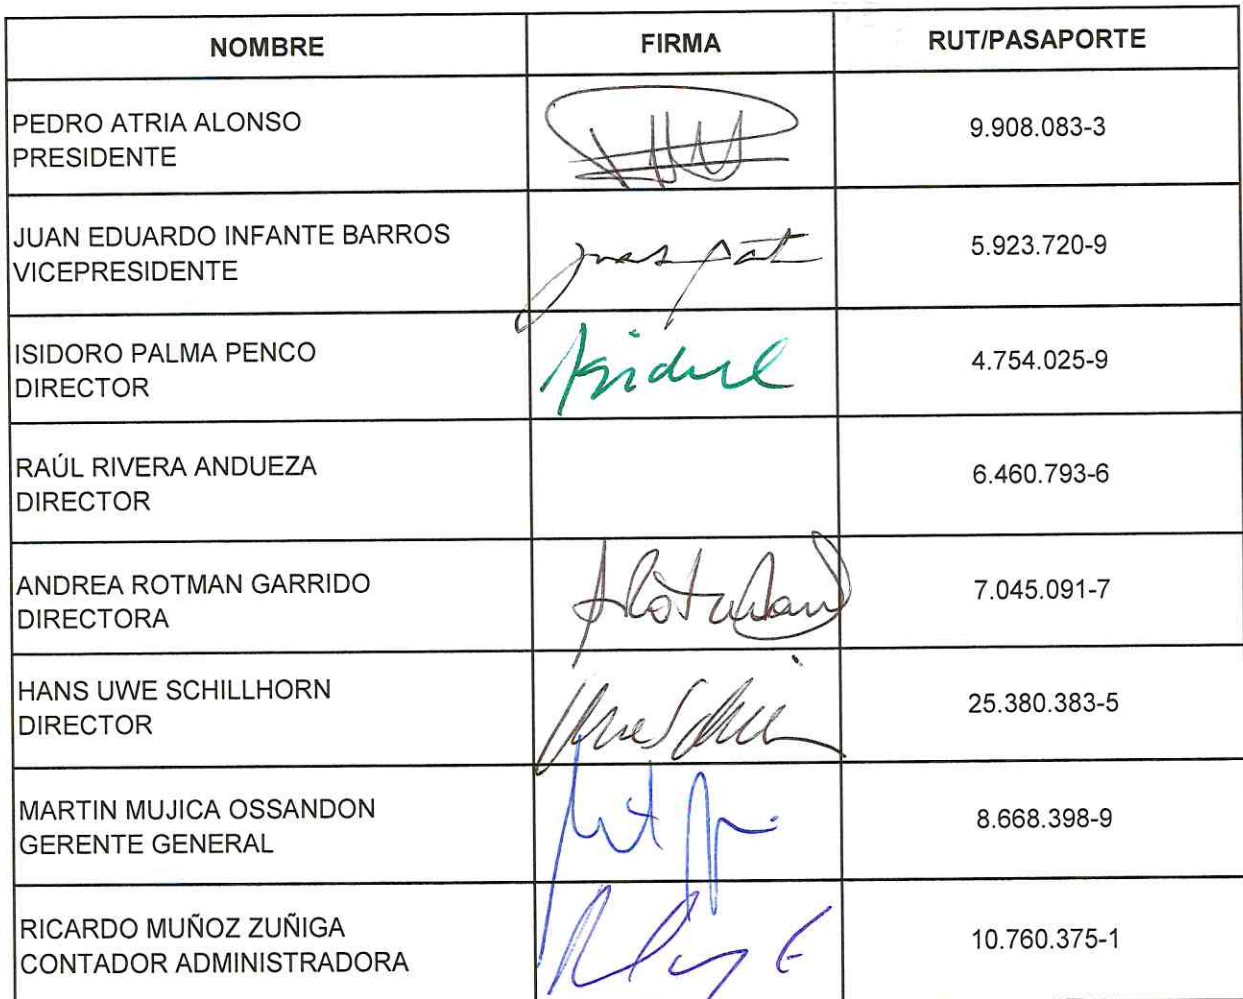 NOMBRE FIRMA RUT/PASAPORTE
PEDRO ATRIA ALONSO
PRESIDENTE
9.908.083-3
JUAN EDUARDO INFANTE BARROS
VICEPRESIDENTE
5.923.720-9
ISIDORO PALMA PENCO
DIRECTOR
4.754.025-9
RAÚL RIVERA ANDUEZA
DIRECTOR
6.460.793-6
ANDREA ROTMAN GARRIDO
DIRECTORA
7.045.091-7
HANS UWE SCHILLHORN
DIRECTOR
25.380.383-5
MARTIN MUJICA OSSANDON
GERENTE GENERAL
8.668.398-9
RICARDO MUÑOZ ZUÑIGA
CONTADOR ADMINISTRADORA
10.760.375-1